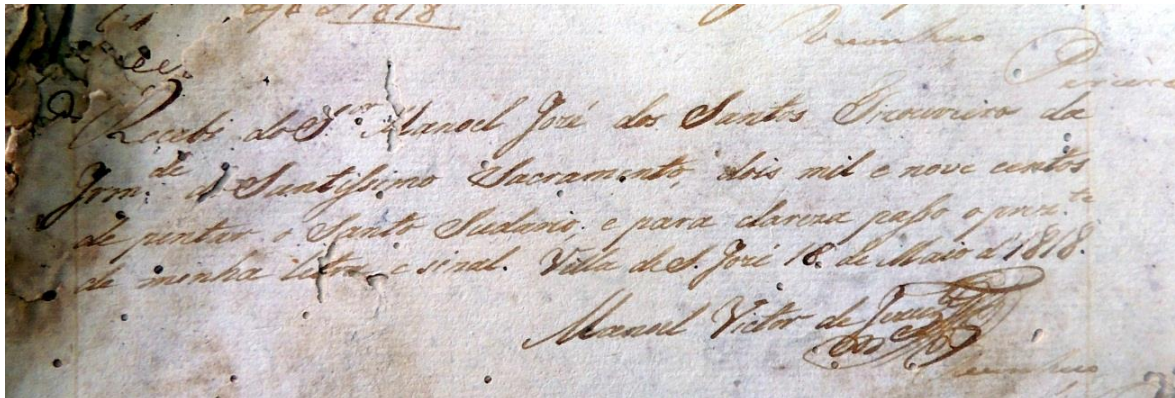 1818
Recebi do S.or Manoel José dos Santos Thezoureiro da
Irm.de do Santissimo Sacramento, dois mil e nove centos
de pintar o Santo Sudario, e para clareza passo o prez.te
de minha letra e sinal. Villa de S. José 18 de Maio d' 1818.
Manoel Victor de Jesus